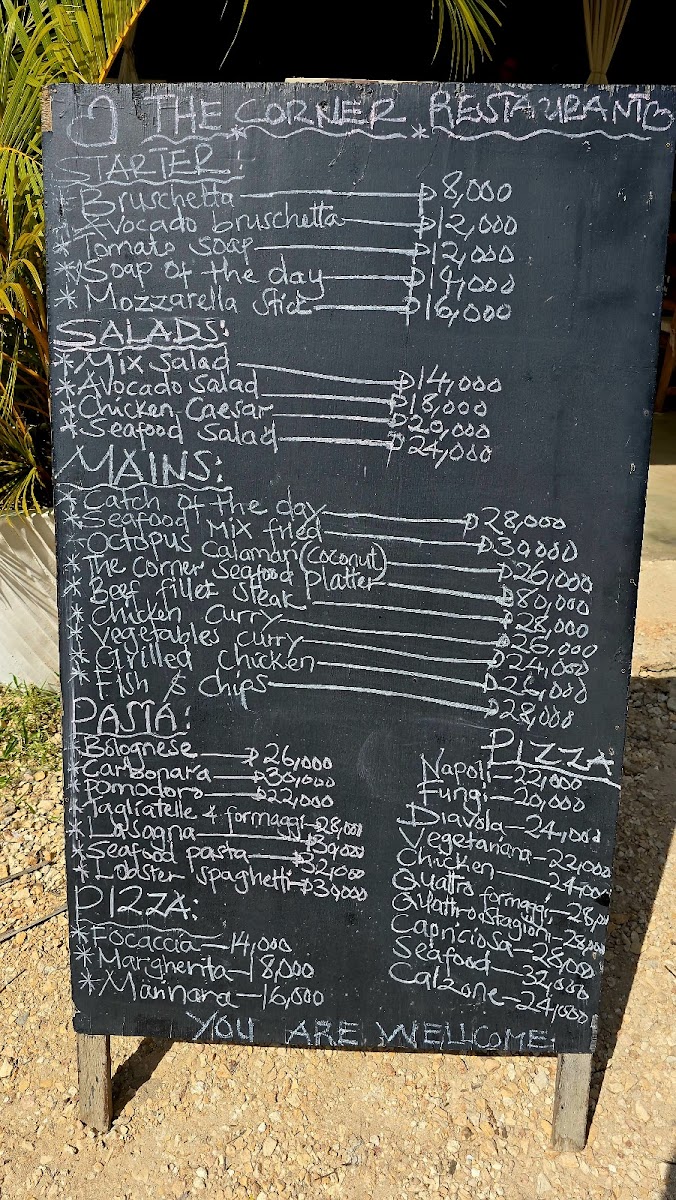 THE CORNER RESTAURANT
STARTER:
* Bruschetta 8,000
* Avocado bruschetta 12,000
* Tomato soap 12,000
* Soap of the day 14,000
* Mozzarella stick 16,000
SALADS:
* Mix Salad 14,000
* Avocado Salad 18,000
* Chicken Caesar 20,000
* Seafood Salad 24,000
MAINS:
* Catch of the day 28,000
* Seafood Mix fried 30,000
* Octopus calamari (coconut) 26,000
* The corner seafood Platter 80,000
* Beef fillet steak 28,000
* Chicken curry 26,000
* Vegetables curry 24,000
* Grilled chicken 26,000
* Fish & chips 28,000
PASTA:
* Bolognese 26,000
* Carbonara 30,000
* Pomodoro 22,000
* Tagliatelle 4 formaggi 28,000
* Lasagna 30,000
* Seafood pasta 32,000
* Lobster spaghetti 30,000
PIZZA:
* Focaccia 14,000
* Margherita 18,000
* Marinara 16,000
PIZZA
Napoli 22,000
Fungi 20,000
Diavola 24,000
Vegetariana 22,000
Chicken 24,000
Quattro formaggi 28,000
Quattro stagioni 28,000
Capriciosa 28,000
Seafood 32,000
Calzone 24,000
YOU ARE WELLCOME